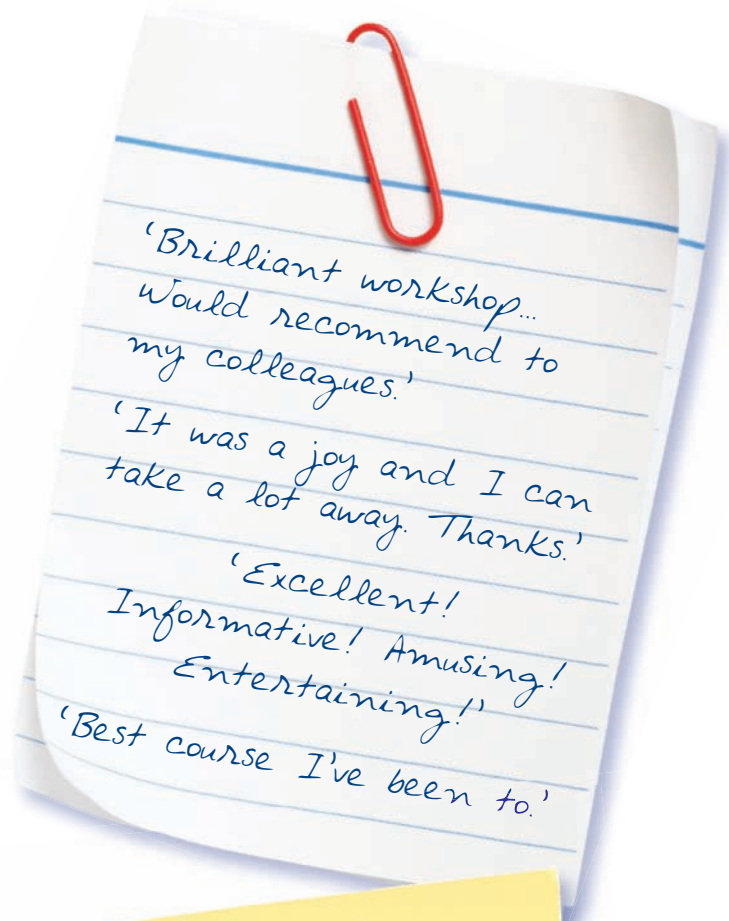 ‘Brilliant workshop...
Would recommend to
my colleagues.’
‘It was a joy and I can
take a lot away. Thanks.’
‘Excellent!
Informative! Amusing!
Entertaining!’
‘Best course I've been to.’